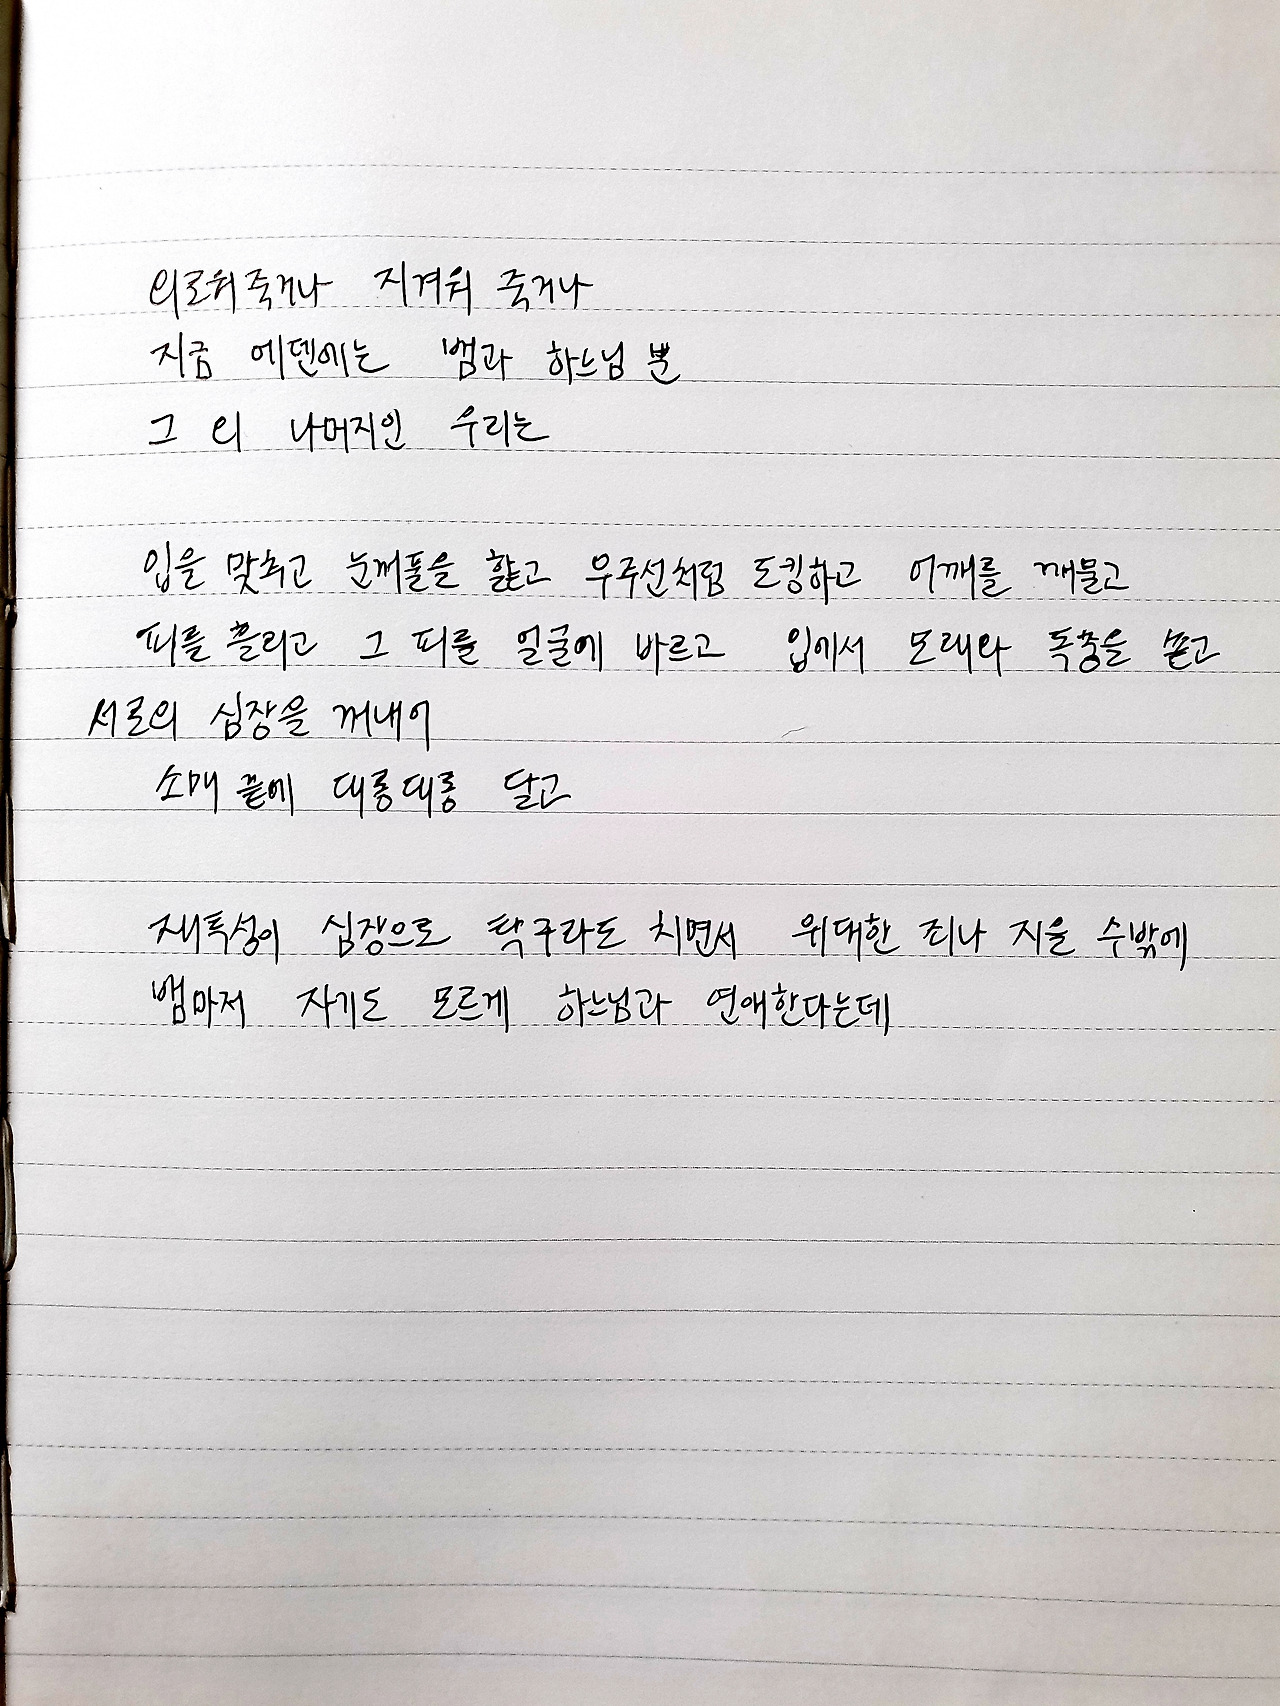 외로워죽거나 지겨워 죽거나
지금 에덴에는 뱀과 하느님 뿐
그 외 나머지인 우리는
입을 맞추고 눈꺼풀을 핥고 우주선처럼 도킹하고 어깨를 깨물고
피를 흘리고 그 피를 얼굴에 바르고 입에서 모래와 독충을 쏟고
서로의 심장을 꺼내어
소매 끝에 대롱대롱 달고
재투성이 심장으로 탁구라도 치면서 위대한 죄나 지을 수밖에
뱀마저 자기도 모르게 하느님과 연애한다는데